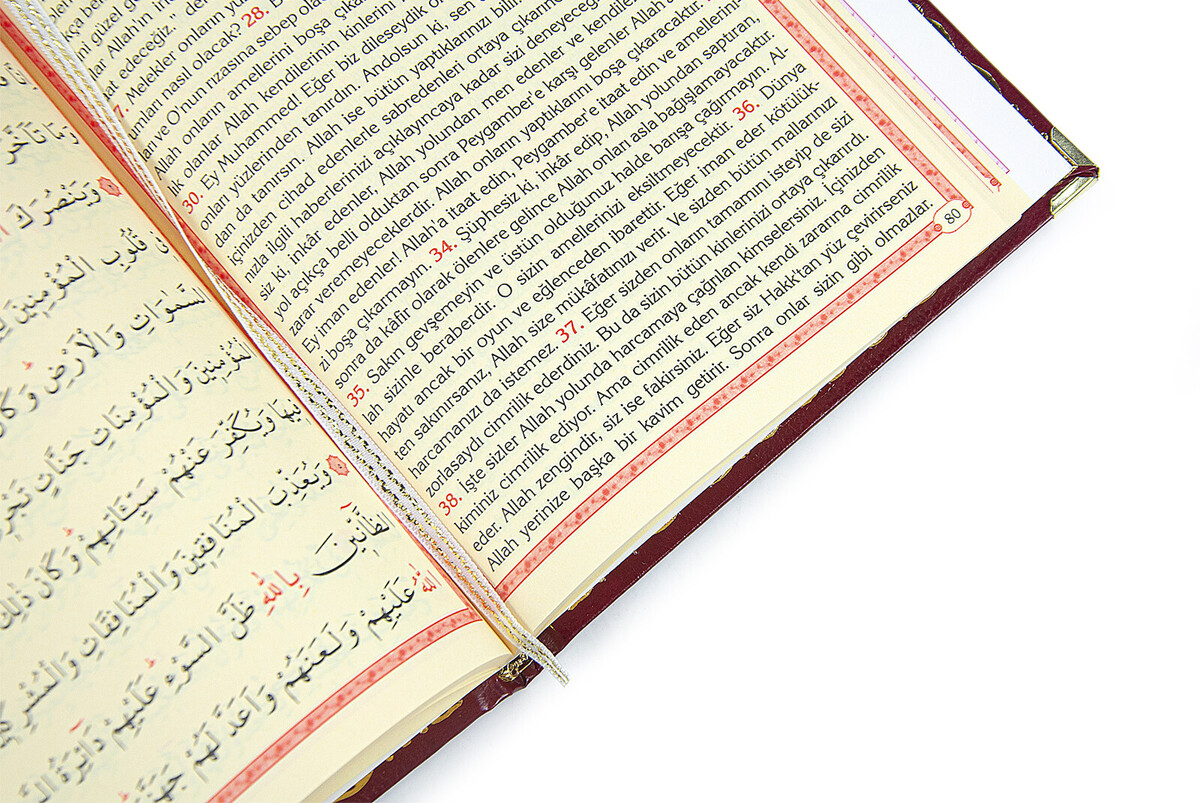 ni güzel
Allah'ın
edeceğiz."
Melekler onların
umları nasıl olacak? 28.
ve O'nun rızasına sebep
Allah onların amellerini boşa
olanlar Allah kendilerinin kinlerini
30. Ey Muhammed! Eğer biz dileseydik
onları yüzlerinden tanırdın. Andolsun ki, sen
dan da tanırsın. Allah ise bütün yaptıklarınızı
içinizden cihad edenlerle sabredenleri ortaya
nızla ilgili haberlerinizi açıklayıncaya kadar sizi
siz ki, inkâr edenler, Allah yolundan men edenler ve
yol açıkça belli olduktan sonra Peygamber'e karşı gelenler
zarar veremeyeceklerdir. Allah onların yaptıklarını boşa çıkaracaktır.
Ey iman edenler! Allah'a itaat edin, Peygamber'e itaat edin ve amellerini-
zi boşa çıkarmayın. 34. Şüphesiz ki, inkâr edip, Allah yolundan saptıran,
sonra da kâfir olarak ölenlere gelince Allah onları asla bağışlamayacaktır.
35. Sakın gevşemeyin ve üstün olduğunuz halde barışa çağırmayın. Al-
lah sizinle beraberdir. O sizin amellerinizi eksiltmeyecektir. 36. Dünya
hayatı ancak bir oyun ve eğlenceden ibarettir. Eğer iman eder kötülük-
ten sakınırsanız, Allah size mükâfatınızı verir. Ve sizden bütün mallarınızı
harcamanızı da istemez. 37. Eğer sizden onların tamamını isteyip de sizi
zorlasaydı cimrilik ederdiniz. Bu da sizin bütün kinlerinizi ortaya çıkarırdı.
38. İşte sizler Allah yolunda harcamaya çağrılan kimselersiniz. İçinizden
kiminiz cimrilik ediyor. Ama cimrilik eden ancak kendi zararına cimrilik
eder. Allah zengindir, siz ise fakirsiniz. Eğer siz Hakk'tan yüz çevirirseniz
Allah yerinize başka bir kavim getirir. Sonra onlar sizin gibi olmazlar.
80
وَمَا تَاَخَّرَ
وَيَنْصُرَكَ
قُلُوبِ الْمُؤْمِن۪ينَ
السَّمٰوَاتِ وَالْاَرْضِ وَكَانَ
الْمُؤْمِن۪ينَ وَالْمُؤْمِنَاتِ جَنَّاتٍ
ف۪يهَا وَيُكَفِّرَ عَنْهُمْ سَيِّـَٔاتِهِمْ وَكَانَ ذٰلِكَ
وَيُعَذِّبَ الْمُنَافِق۪ينَ وَالْمُنَافِقَاتِ
الظَّٓانّ۪ينَ بِاللّٰهِ ظَنَّ السَّوْءِ عَلَيْهِمْ دَٓائِرَةُ
اللّٰهُ عَلَيْهِمْ وَلَعَنَهُمْ وَاَعَدَّ لَهُمْ